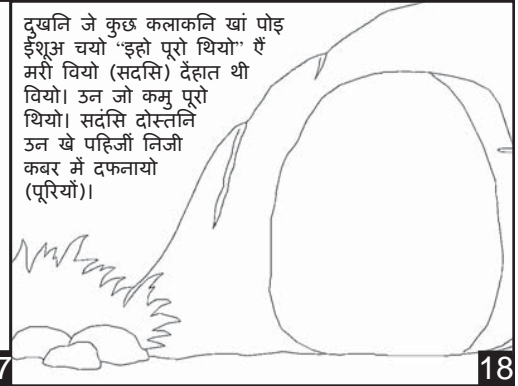 दुखनि जे कुछ कलाकनि खां पोइ
ईशूअ चयो “इहो पूरो थियो” ऐं
मरी वियो (सदसि) देंहात थी
वियो। उन जो कमु पूरो
थियो। सदंसि दोस्तनि
उन खे पहिजीं निजी
कबर में दफनायो
(पूरियों)।
7
18